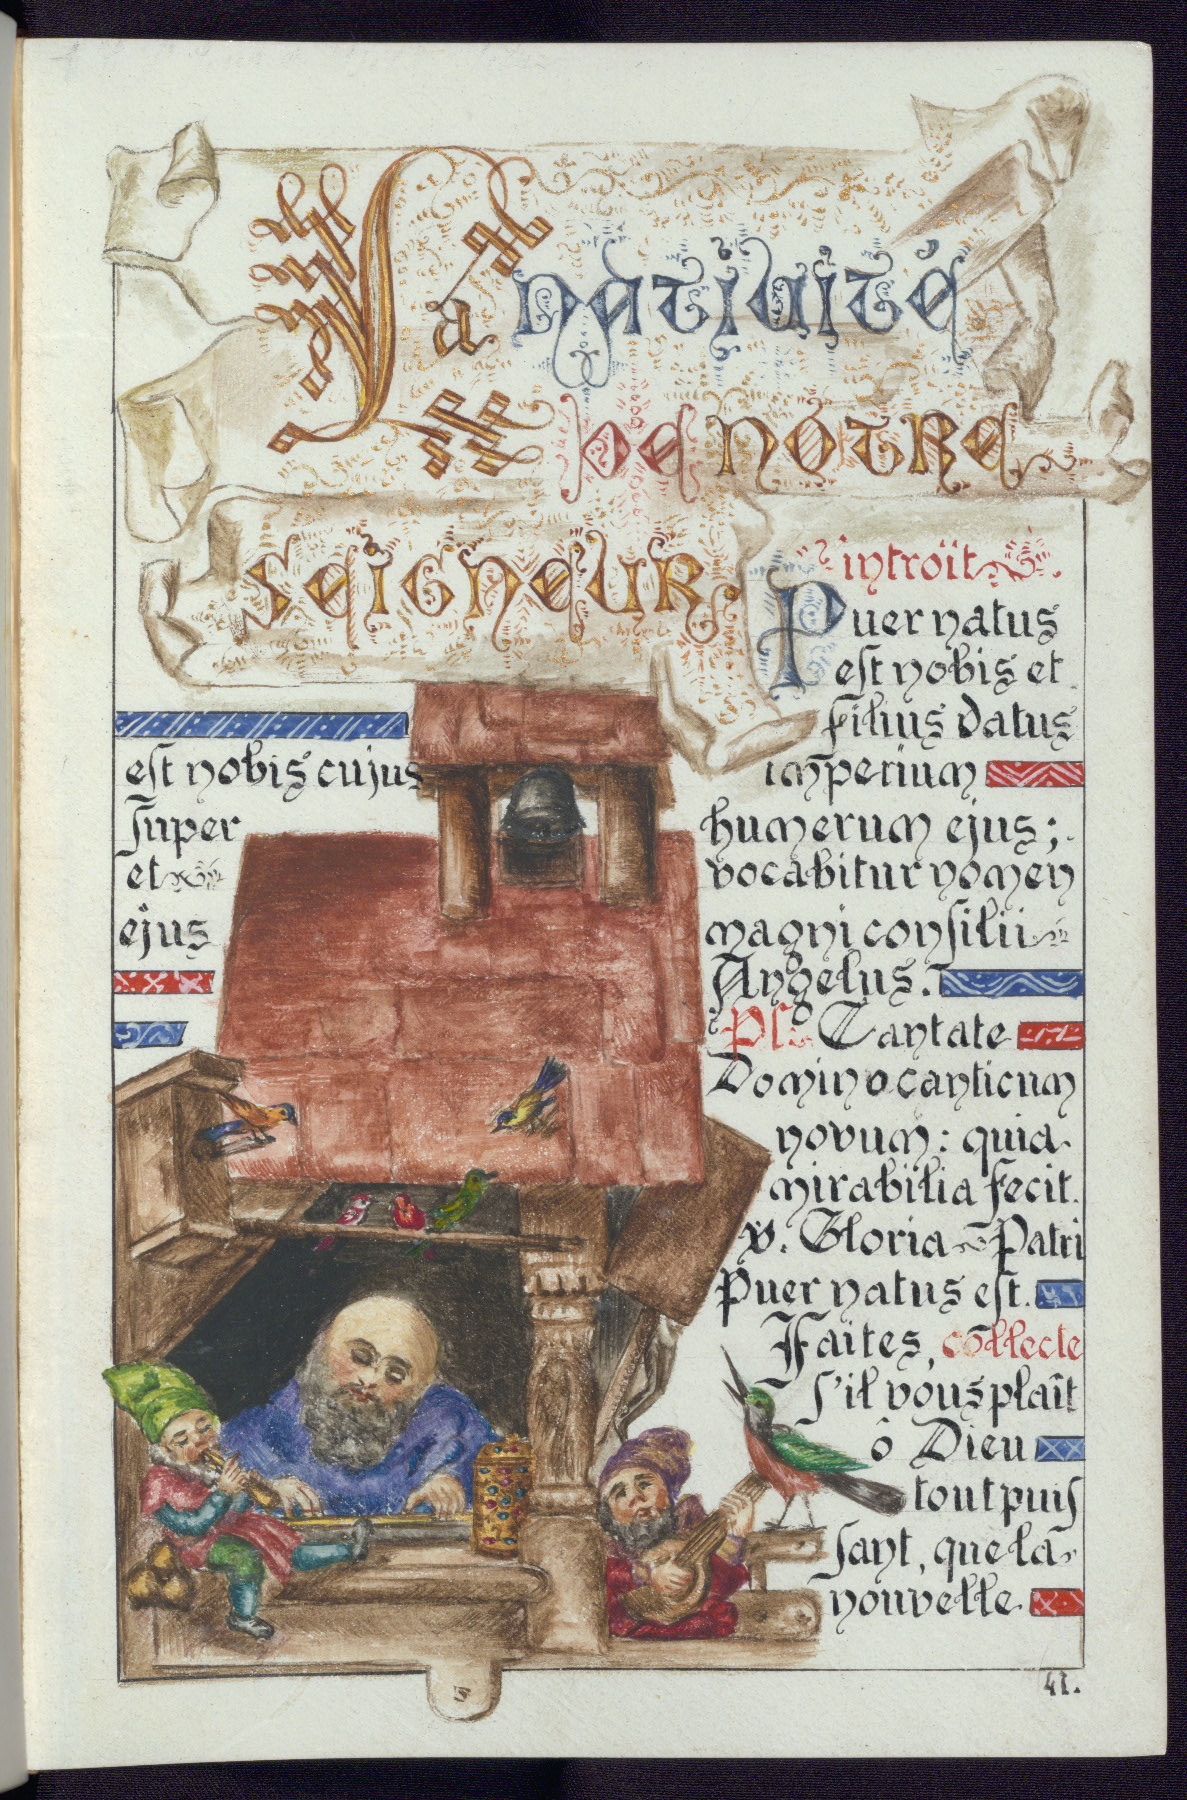 La natiuité
de nôtre
seigneur
introït
Puer natus
eſt nobis et
filius datus
eſt nobis cujus imperium
ſuper humerum ejus;
et vocabitur nomen
ejus magni conſilii
Angelus.
Pſ. Cantate
Domino canticum
novum: quia
mirabilia fecit.
℣. Gloria Patri
Puer natus eſt.
Faites, collecte
ſ'il vous plaît
ô Dieu
tout puiſ
ſant, que la
nouvelle
41.